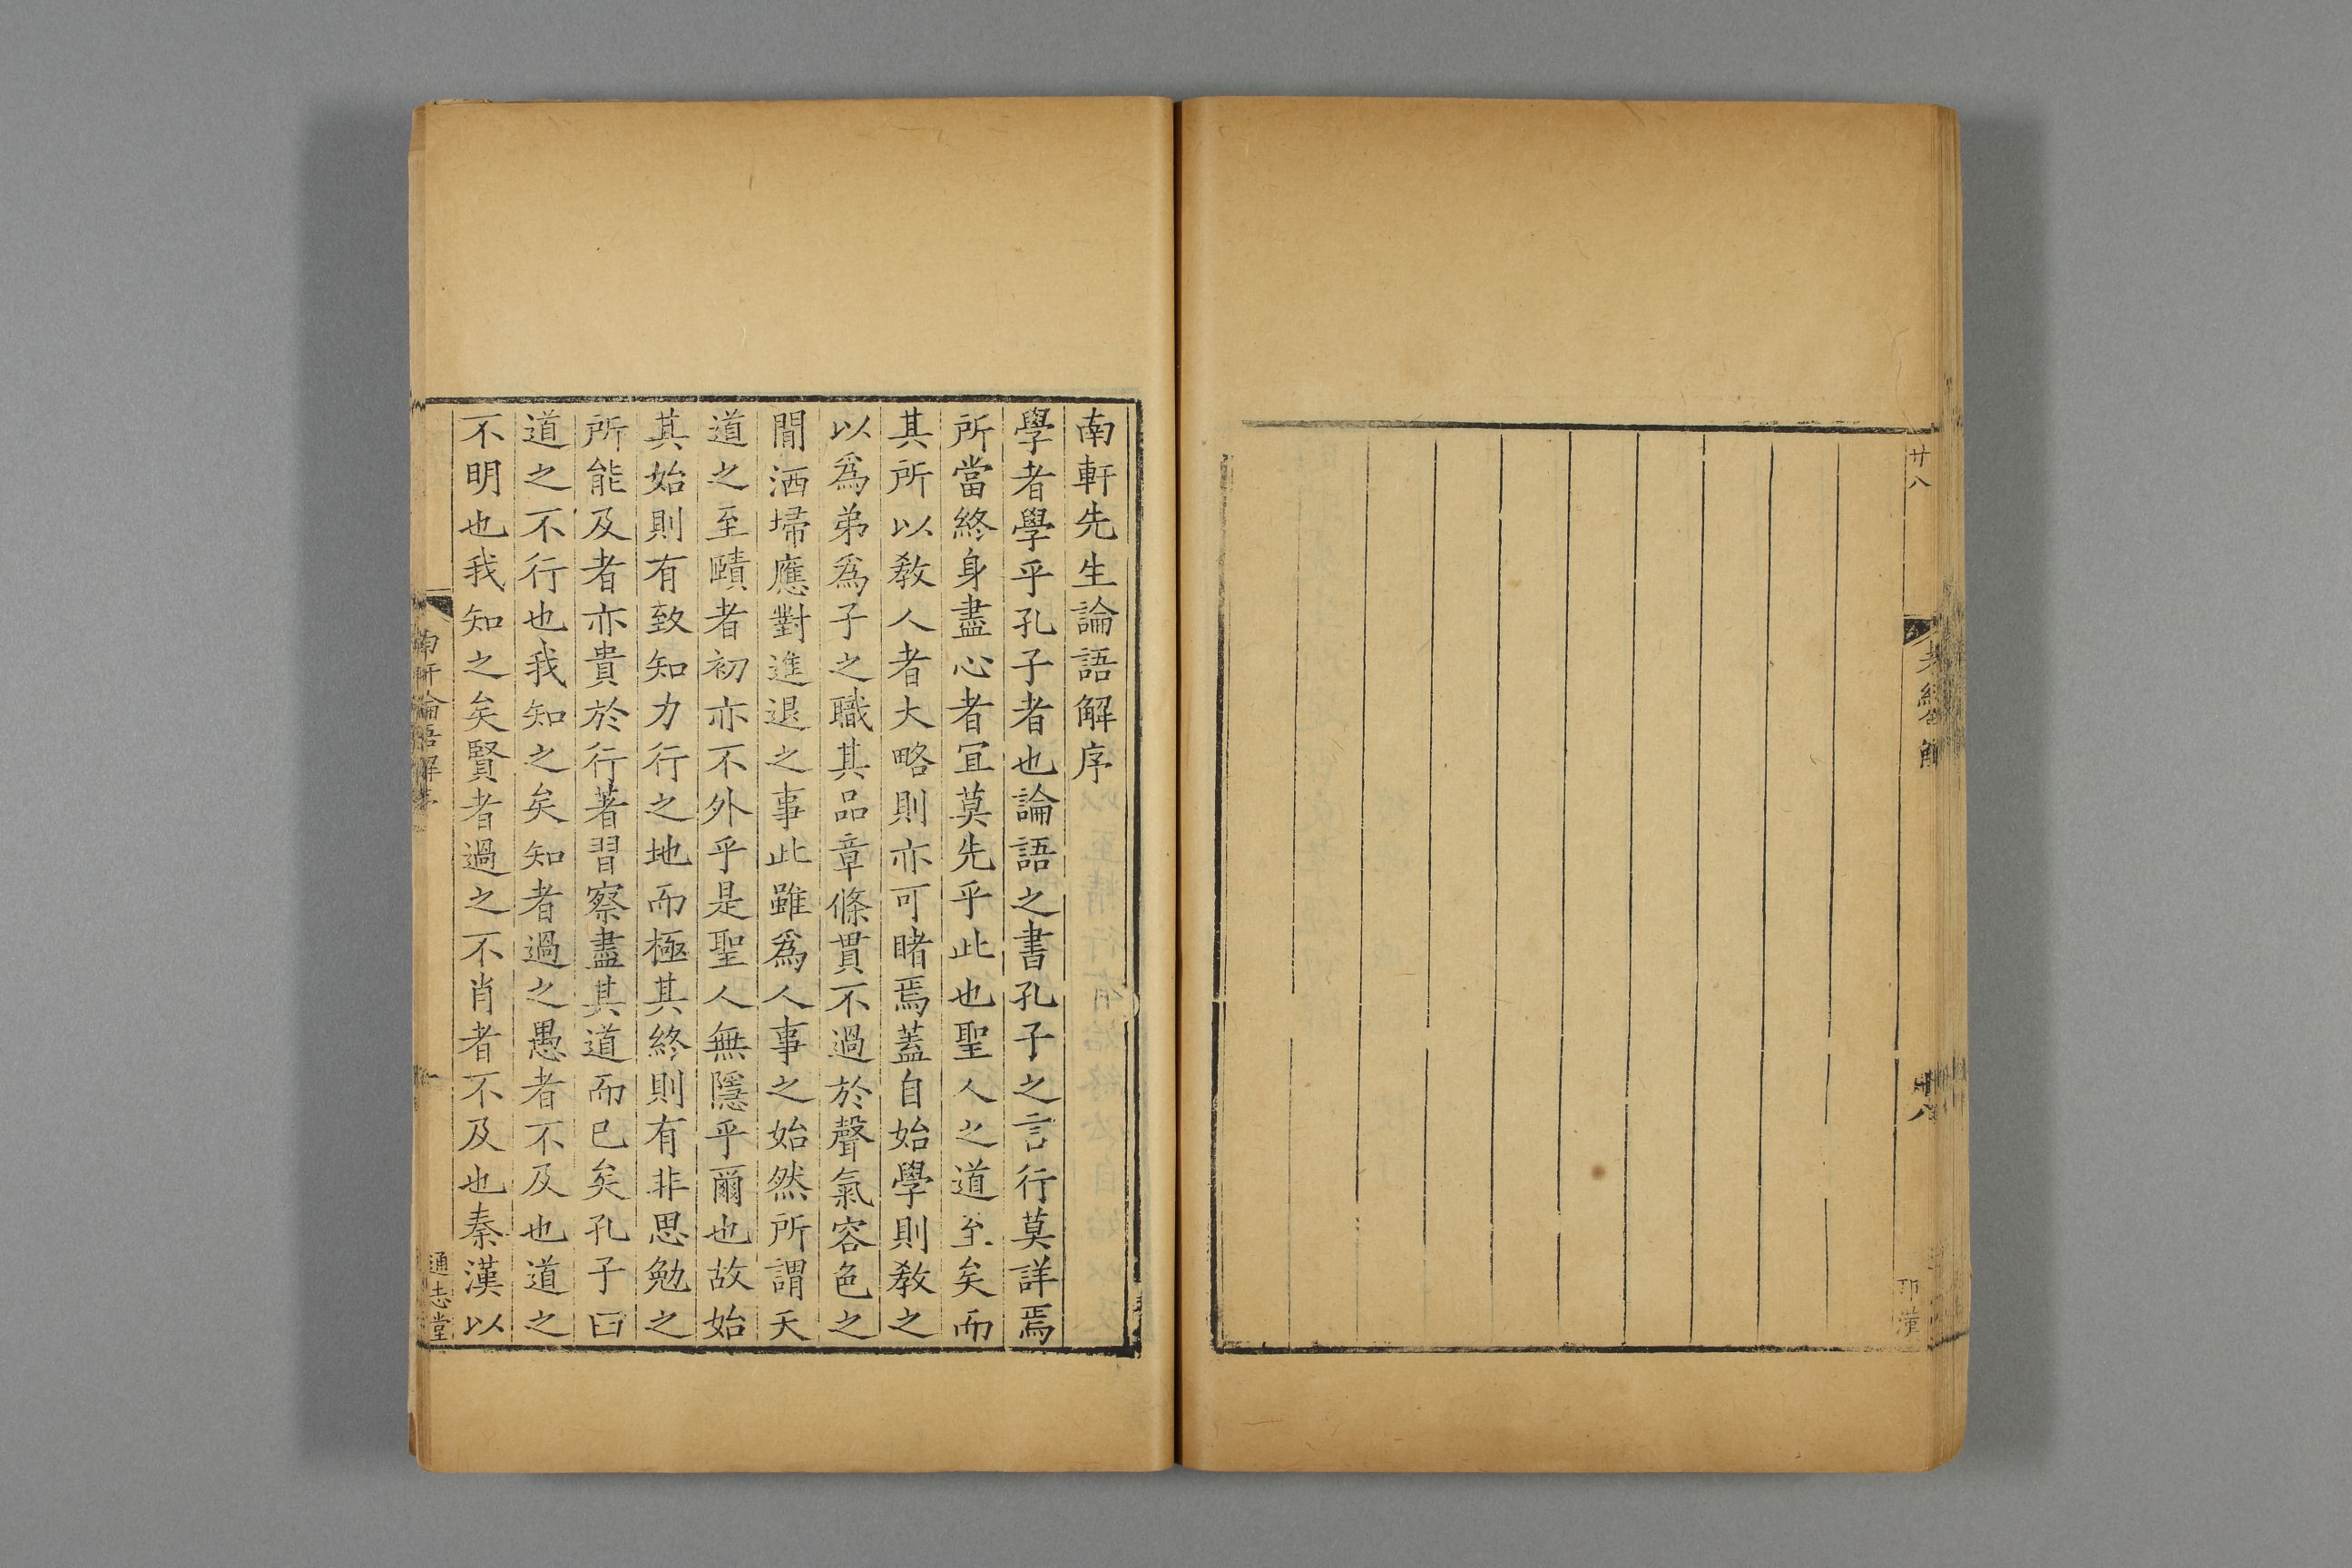 廿八
解
卅八
南軒先生論語解序
學者學乎孔子者也論語之書孔子之言行莫詳焉
所當終身盡心者宜莫先乎此也聖人之道至矣而
其所以教人者大略則亦可睹焉蓋自始學則教之
以爲弟爲子之職其品章條貫不過於聲氣容色之
閒洒埽應對進退之事此雖爲人事之始然所謂天
道之至賾者初亦不外乎是聖人無隱乎爾也故始
其始則有致知力行之地而極其終則有非思勉之
所能及者亦貴於行著習察盡其道而已矣孔子曰
道之不行也我知之矣知者過之愚者不及也道之
不明也我知之矣賢者過之不肖者不及也秦漢以
南軒論語解序
通志堂